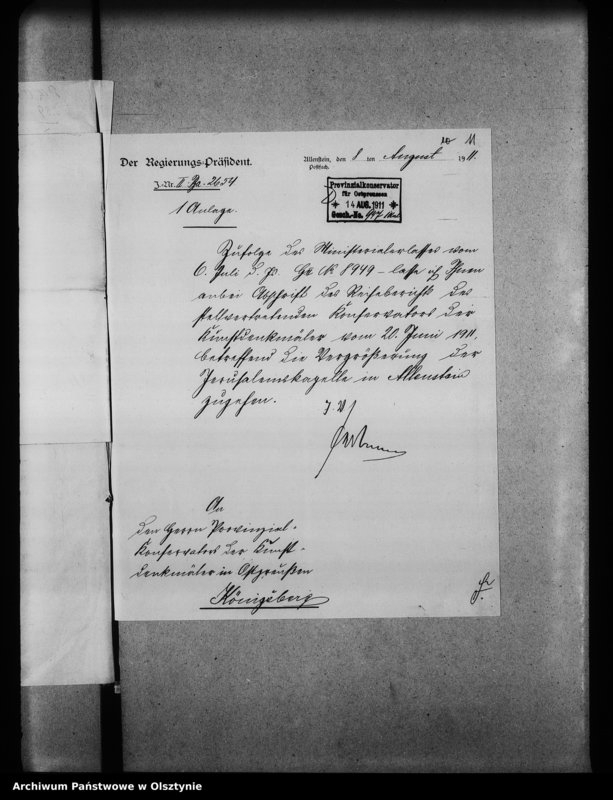 11
Der Regierungs-Präsident.
Allenstein, den 8 ten August 1911.
Postfach.
J.-Nr. II 2654
1 Anlage.
Provinzialkonservator
für Ostpreussen
14 AUG. 1911
Gesch.-No. 997
Zufolge des Ministerialerlasses vom
6. Juli d. Js. № 8949 – lasse ich Ihnen
anbei Abschrift des Reiseberichts des
stellvertretenden Konservators der
Kunstdenkmäler vom 20. Juni 1911,
betreffend die Vergrößerung der
Jerusalemskapelle in Allenstein
zugehen.
J. V.
An
den Herrn Provinzial-
Konservator der Kunst-
denkmäler in Ostpreußen
Königsberg
Archiwum Państwowe w Olsztynie